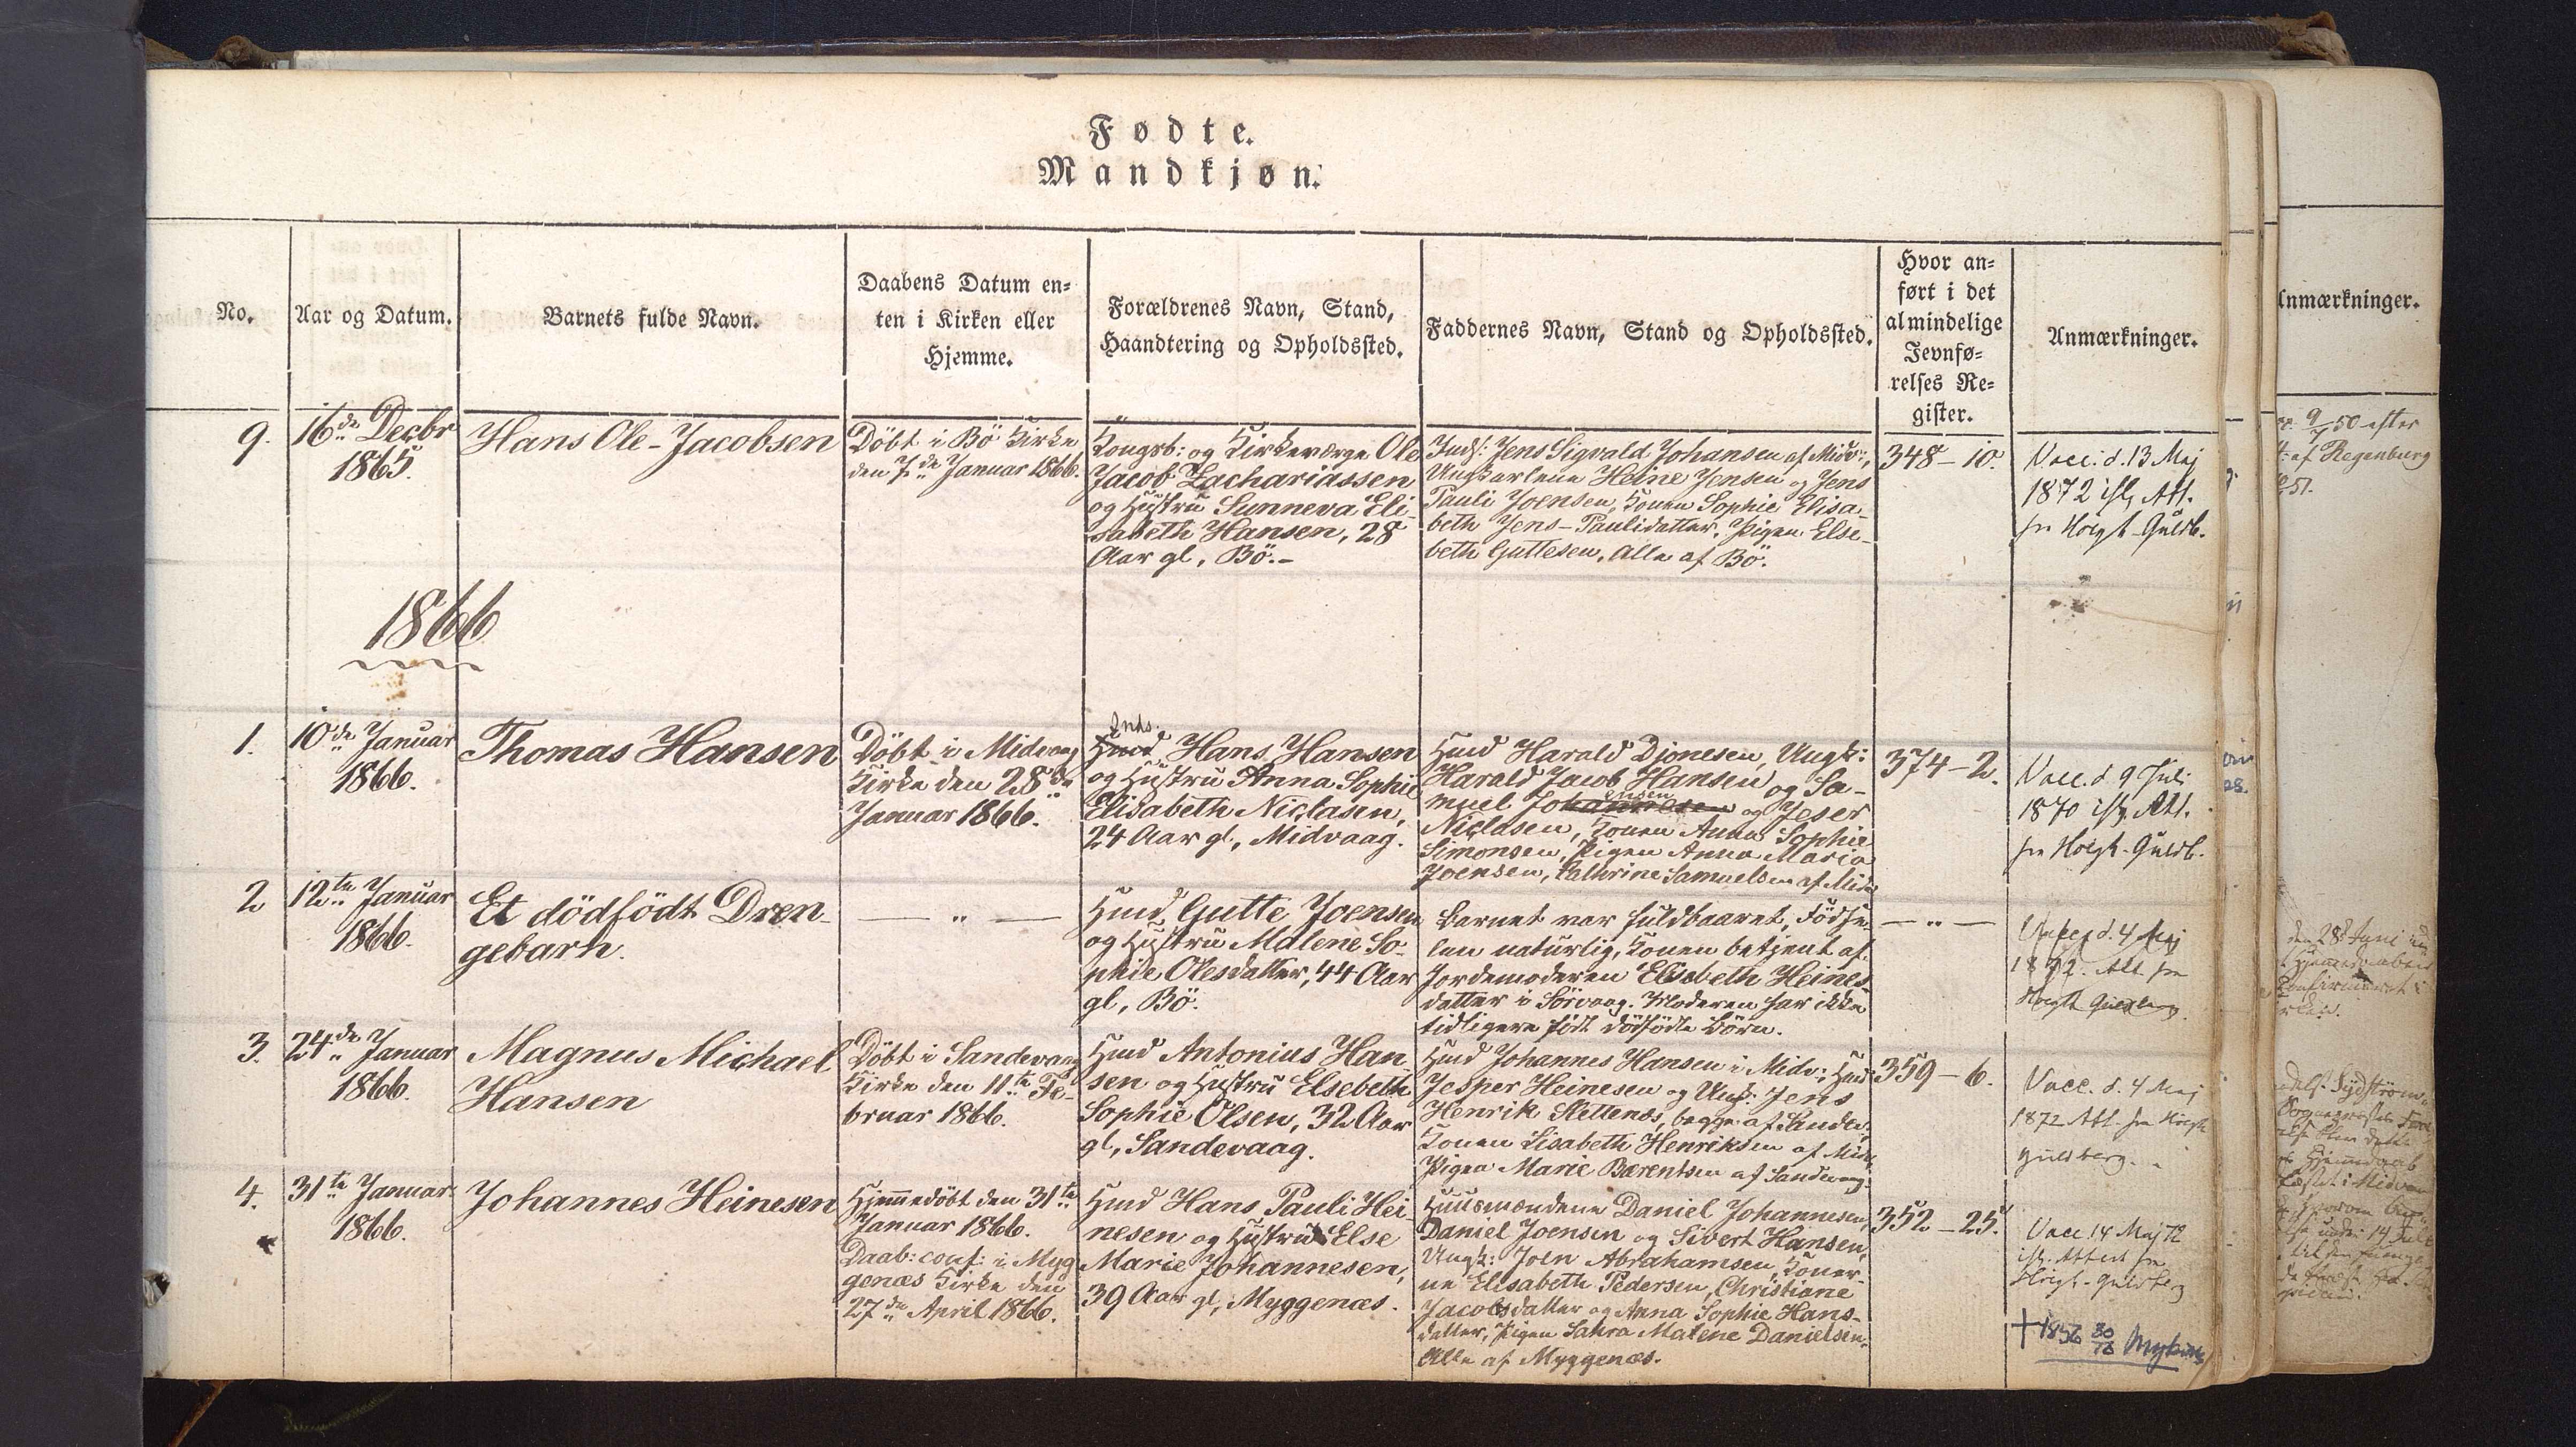 Fødte.
Mandkjøn.
No.
Aar og Datum.
Barnets fulde Navn.
Daabens Datum en-
ten i Kirken eller
Hjemme.
Forældrenes Navn, Stand,
Haandtering og Opholdssted.
Faddernes Navn, Stand og Opholdssted.
Hvor an-
ført i det
almindelige
Jevnfø-
relses Re-
gister.
Anmærkninger.
9.
16de Decbr
1865.
Hans Ole-Jacobsen
Döbt i Bö Kirke
den 7de Januar 1866.
Kongsb: og Kirkeværge Ole
Jacob Zachariassen
og Hustru Sunneva Eli-
sabeth Hansen, 28
Aar gl, Bö.-
Inds: Jens Sigvald Johansen af Midv:,
Ungkarlene Heine Jensen og Jens
Pauli Joensen, Konen Sophie Elisa-
beth Jens-Paulidatter, Pigen Else-
beth Guttesen, Alle af Bö.
348-10.
Vacc: d. 13 Maj
1872 Att.
fra Hoigh-Guldb.
1866
1.
10de Januar
1866.
Thomas Hansen
Döbt i Midvaag
Kirke den 28de
Januar 1866.
Inds.
Huusd Hans Hansen
og Hustru Anna Sophie
Elisabeth Niclasen,
24 Aar gl, Midvaag.
Huusd Harald Djonesen, Ungk:
Harald Jacob Hansen og Sa-
ensen
muel Johannesen og Jeser
Niclasen, Konen Anna Sophie
Simonsen, Pigen Anna Maria
Joensen, Cathrine Samuelsen af Midv
374-2.
Vacc. d. 9 Juli
1870 Att.
fra Hoigh-Guldb.
2
12te Januar
1866.
Et dödfödt Dren-
gebarn.
— " —
Huusd Gutte Joensen
og Hustru Malene So-
phie Olesdatter, 44 Aar
gl, Bö.
Barnet var fuldbaaret, Födse-
len naturlig, Konen betjent af
Jordemoderen Elisebeth Heines-
datter i Sörvaag. Moderen har ikke
tidligere födt dödfödte Börn.
— " —
d. 4 Maj
1872. Att fra
Hoigh Guldberg.
3.
24de Januar
1866.
Magnus Michael
Hansen
Döbt i Sandevaag
Kirke den 11te Fe-
bruar 1866.
Huusd Antonius Han-
sen og Hustru Elsebeth
Sophie Olsen, 32 Aar
gl, Sandevaag.
Huusd Johannes Hansen i Midv:, Huusd
Jesper Heinesen og Ungk: Jens
Henrik Slettenæs, begge af Sandev:
Konen Lisabeth Henriksen af Midv,
Pigen Marie Bærentsen af Sandevaag.
359-6.
Vacc. d. 4 Maj
1872 Att. fra Hoigh
Guldberg.
4.
31te Januar
1866.
Johannes Heinesen
Hjemmedöbt den 31te
Januar 1866.
Daab: conf: i Myg-
genæs Kirke den
27de April 1866.
Huusd Hans Pauli Hei-
nesen og Hustru Else
Marie Johannesen,
39 Aar gl, Myggenæs.
Huusmændene Daniel Johannesen,
Daniel Joensen og Sivert Hansen,
Ungk: Joen Abrahamsen, Koner-
ne Elisabeth Pedersen, Christiane
Jacobsdatter og Anna Sophie Hans-
datter, Pigen Sahra Malene Danielsen,
Alle af Myggenæs.
352-25.
Vacc 14 Maj 72
Attest fra
Hoigh-Guldberg
Anmærkninger.
9/7 50 efter
af Regenburg
den 28de Juni